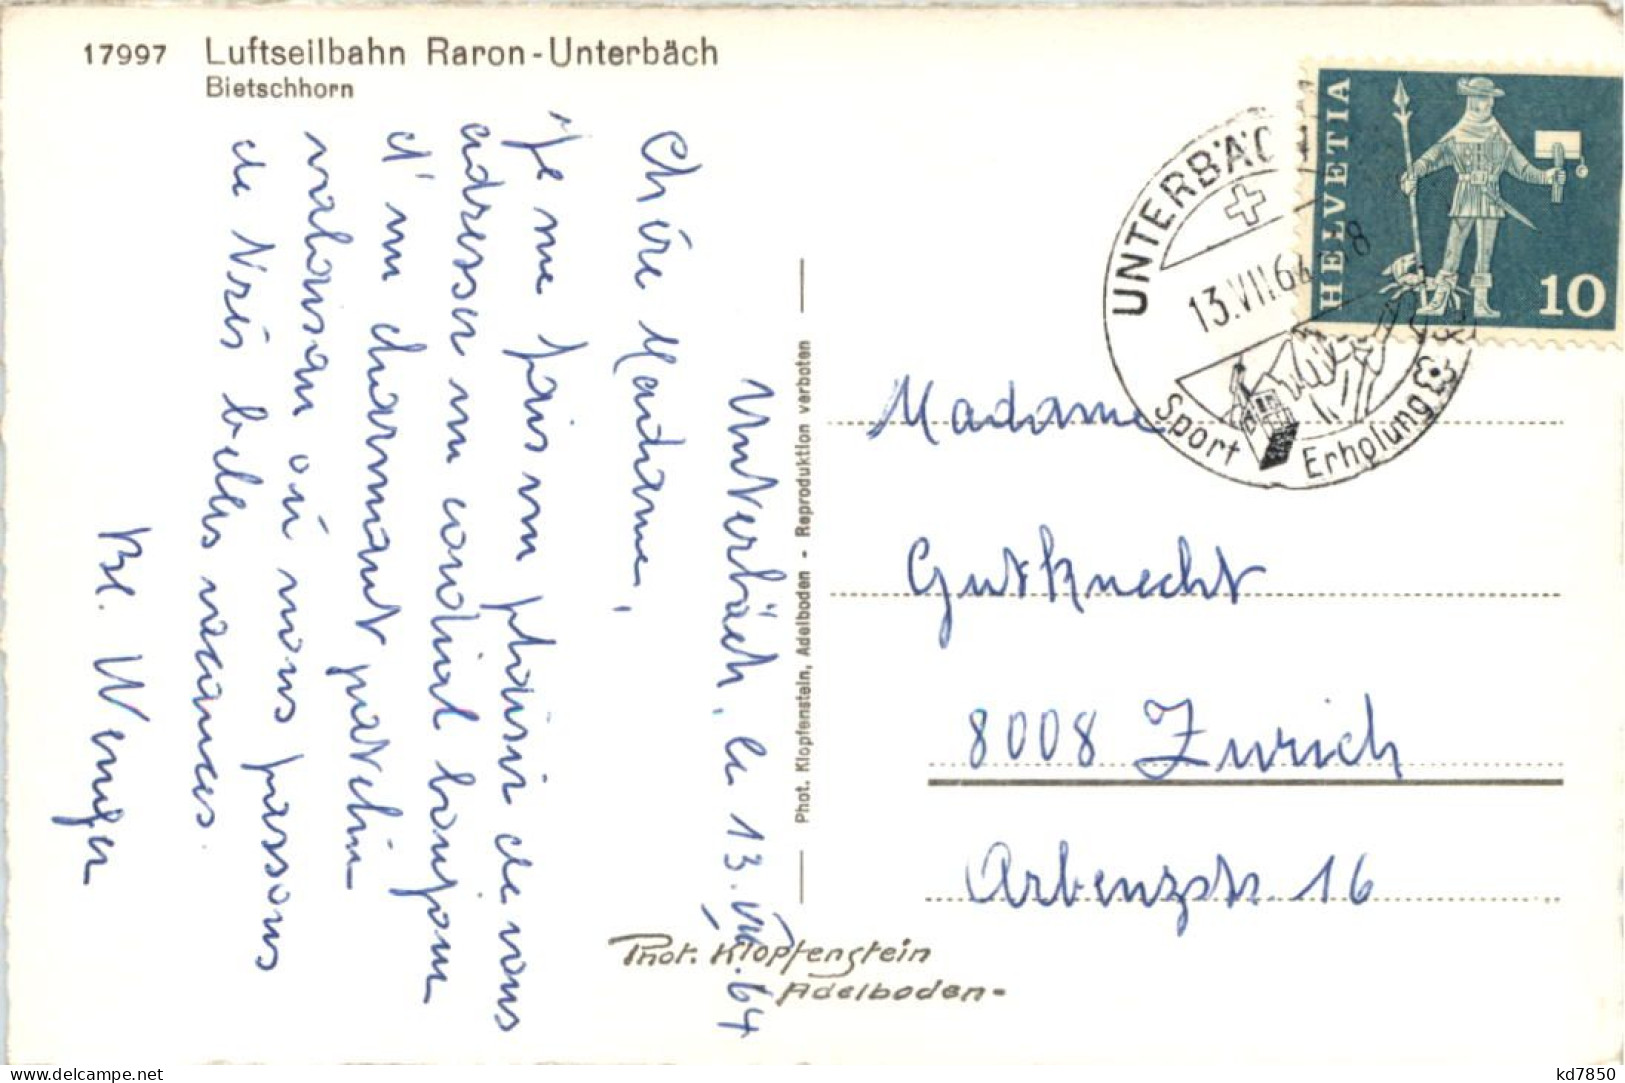 17997 Luftseilbahn Raron-Unterbäch
Bietschhorn
Unterbäch, le 13.VII.64
Chère Madame,
Je me fais un plaisir de vous
adresser un cordial bonjour
d'un charmant patelin
valaisan où nous passons
de très belles vacances.
Bl. Wenger
Phot. Klopfenstein, Adelboden - Reproduktion verboten
Phot. Klopfenstein
Adelboden-
UNTERBÄCH
13.VII.64 - 8
Sport Erholung
HELVETIA
10
Madame
Gutknecht
8008 Zurich
Arbenzstr. 16
delcampe.net
kd7850